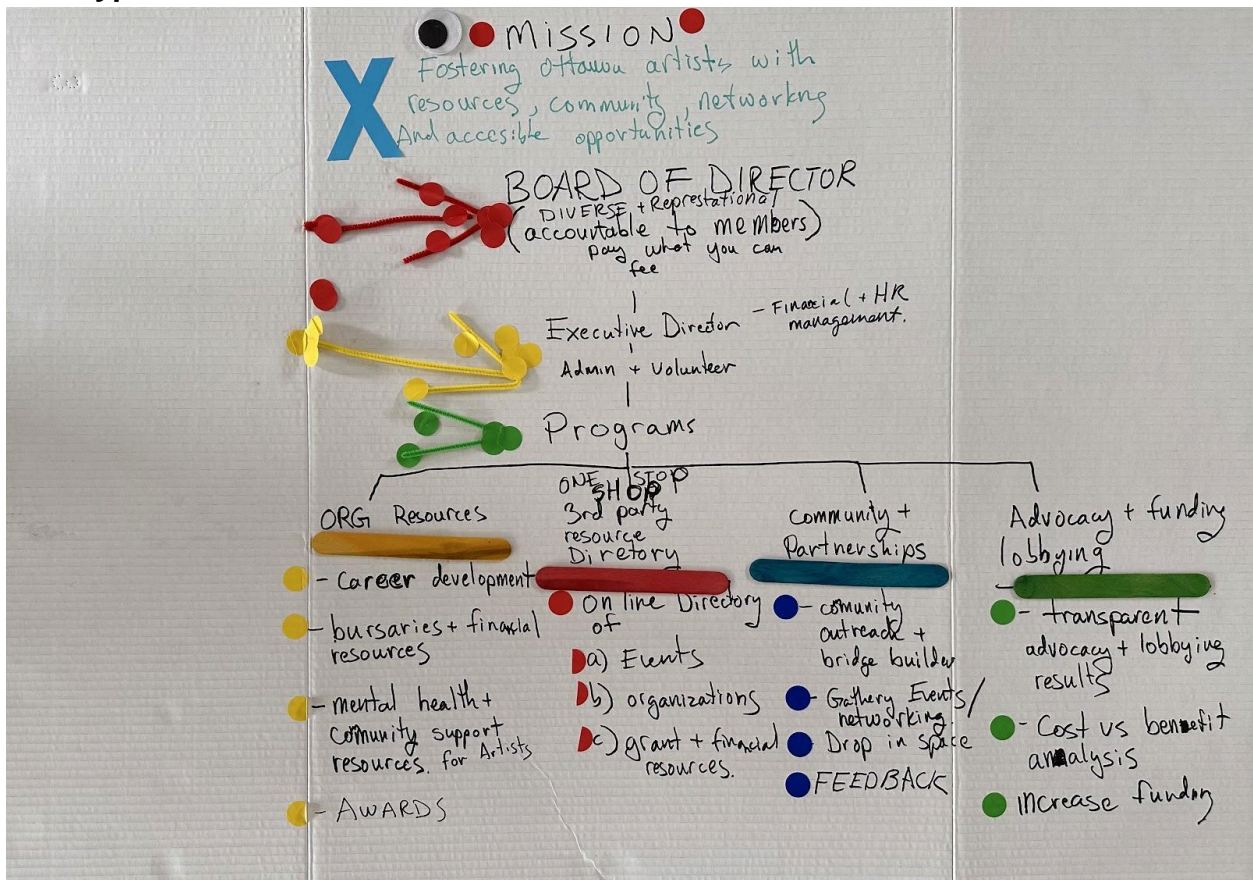 MISSION
Fostering Ottawa artists with
resources, community, networkng
And accesible opportunities
BOARD OF DIRECTOR
DIVERSE + Represtational
(accountable to members)
pay what you can
fee
Executive Director
- Financial + HR
management.
Admin + Volunteer
Programs
ORG Resources
- Career development
- bursaries + financial
resources
- mental health +
comunity support
resources. for Artists
- AWARDS
ONE STOP
SHOP
3rd party
resource
Diretory
On line Directory
of
a) Events
b) organizations
c) grant + financial
resources.
Community +
Partnerships
- comunity
outreach +
bridge builder
- Gathery Events/
networking.
Drop in space
FEEDBACK
Advocacy + funding
lobbying
- transparent
advocacy + lobbying
results
- Cost vs benefit
analysis
increase funding